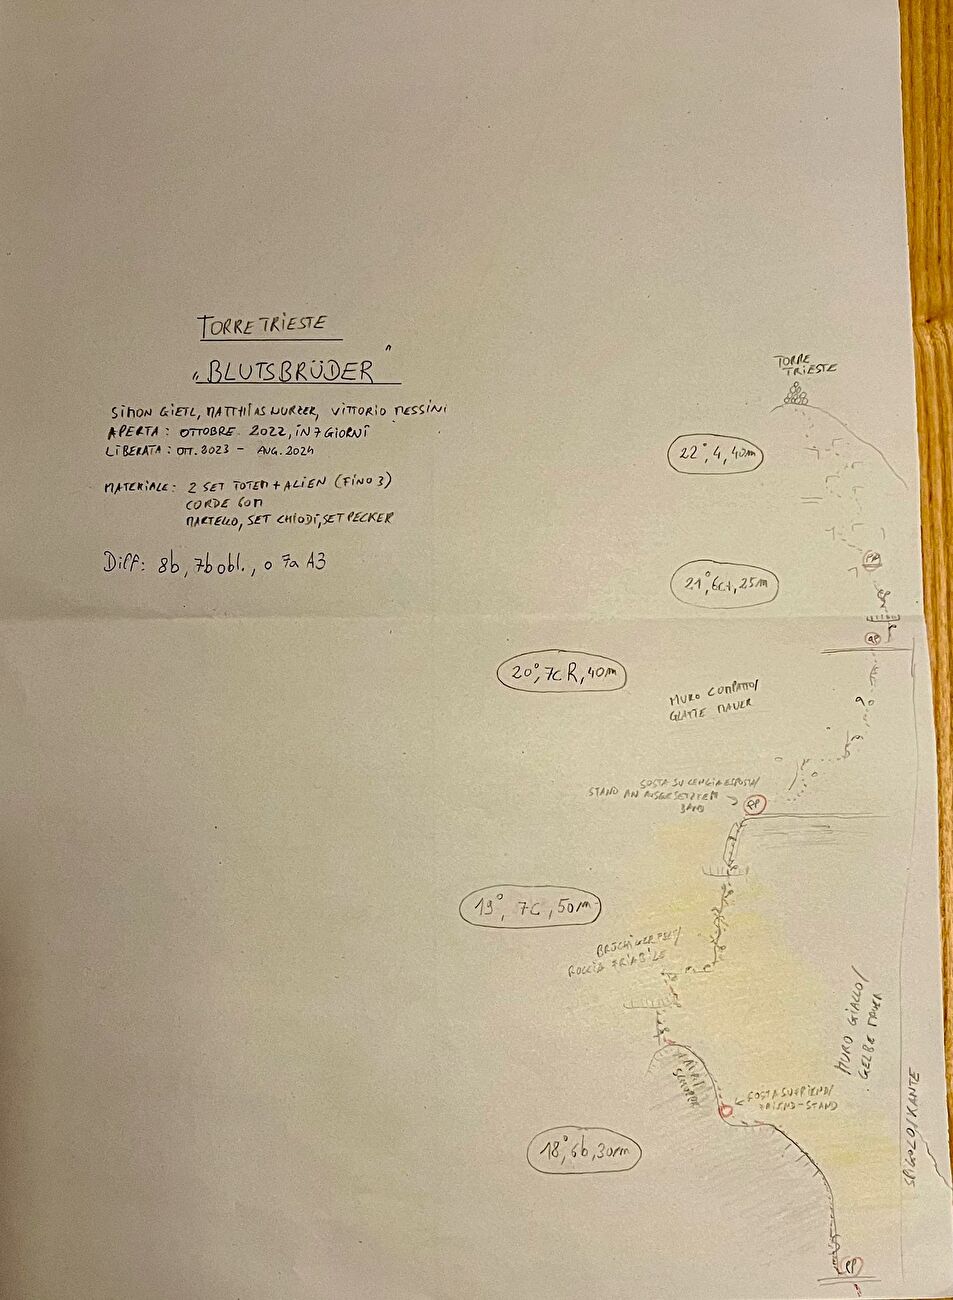 TORRE TRIESTE
„BLUTSBRÜDER"
SIMON GIETL, MATTHIAS WURZER, VITTORIO MESSINI
APERTA: OTTOBRE 2022, IN 7 GIORNI
LIBERATA: OTT. 2023 - AUG. 2024
MATERIALE: 2 SET TOTEM + ALIEN (FINO 3)
CORDE 60M
MARTELLO, SET CHIODI, SET PECKER
Diff: 8b, 7b obl., o 7a A3
TORRE
TRIESTE
22°, 4, 40m
21°, 6c+, 25m
20°, 7c R, 40m
MURO COMPATTO/
GLATTE MAUER
SOSTA SU CENGIA ESPOSTA/
STAND AN AUSGESETZTEM
BAND
19°, 7c, 50m
BRÜCHIGER FELS/
ROCCIA FRIABILE
MURO GIALLO/
GELBE MAUER
SOSTA SU FRIEND/
FRIEND-STAND
SPIGOLO/KANTE
18°, 6b, 30m